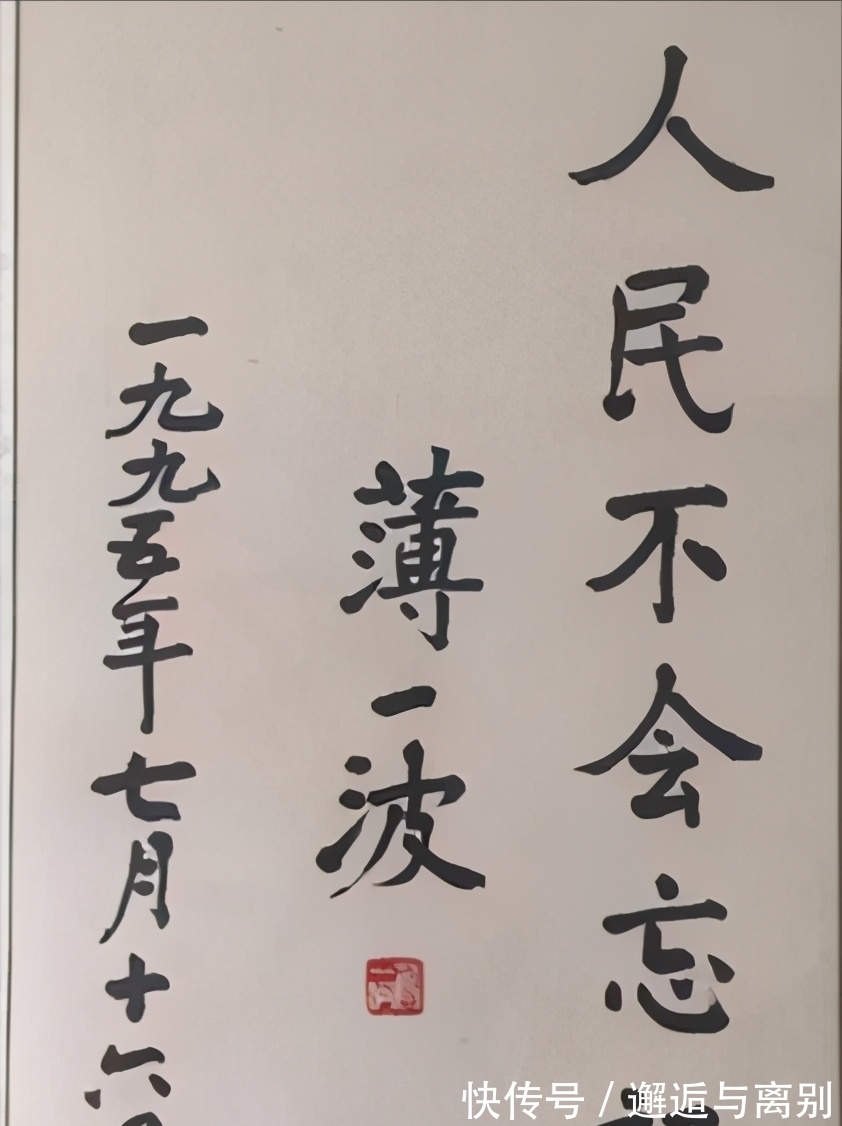 人民不会忘
薄一波
一九九五年七月十六
快传号 / 邂逅与离别